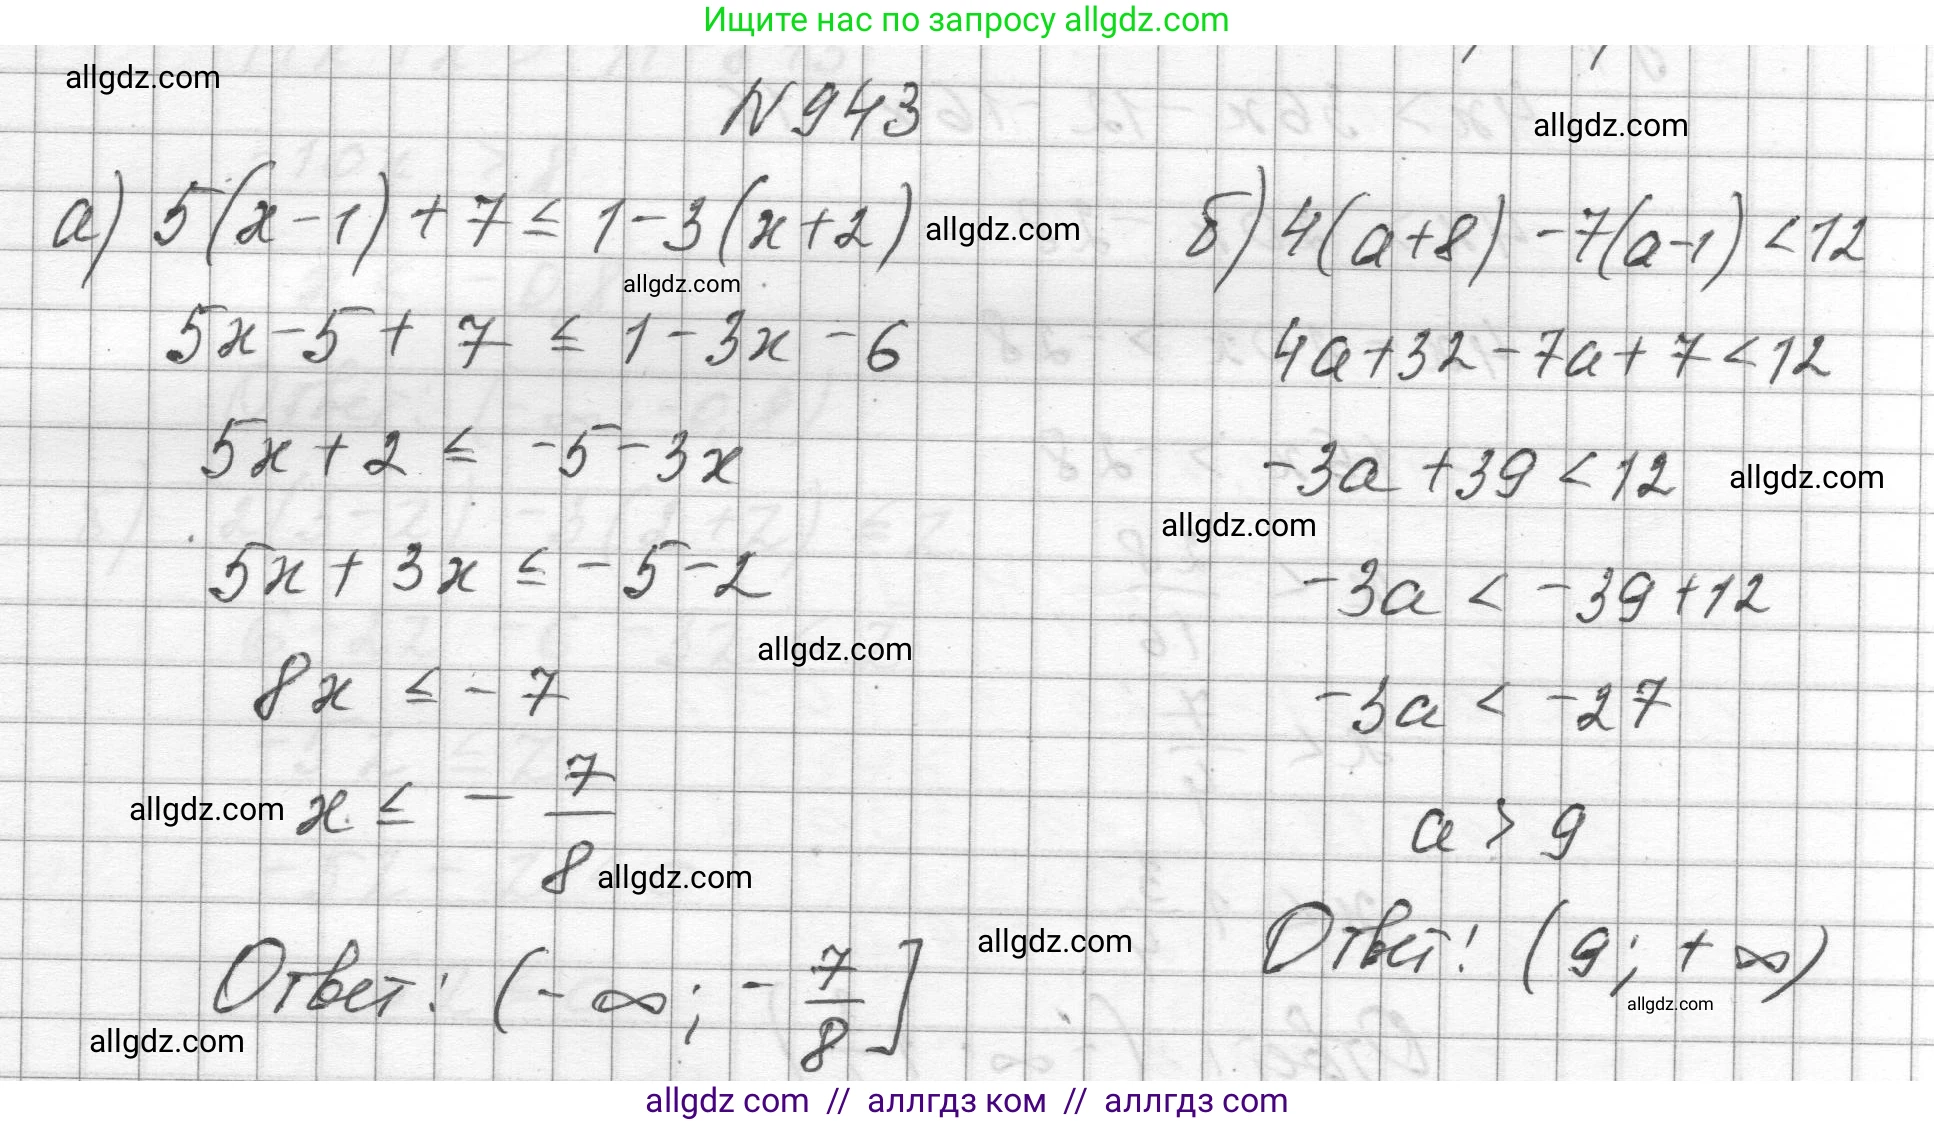 Ищите нас по запросу allgdz.com
allgdz.com
N 943
allgdz.com
а) 5(x-1)+7 ≤ 1-3(x+2)
allgdz.com
allgdz.com
5x-5+7 ≤ 1-3x-6
5x+2 ≤ -5-3x
5x+3x ≤ -5-2
allgdz.com
8x ≤ -7
allgdz.com
x ≤ - 7/8
allgdz.com
Ответ: (-∞; - 7/8]
allgdz.com
allgdz.com
б) 4(a+8)-7(a-1)<12
4a+32-7a+7<12
-3a+39<12
allgdz.com
allgdz.com
-3a < -39+12
-3a < -27
a > 9
Ответ: (9; +∞)
allgdz.com
allgdz com // аллгдз ком // аллгдз com